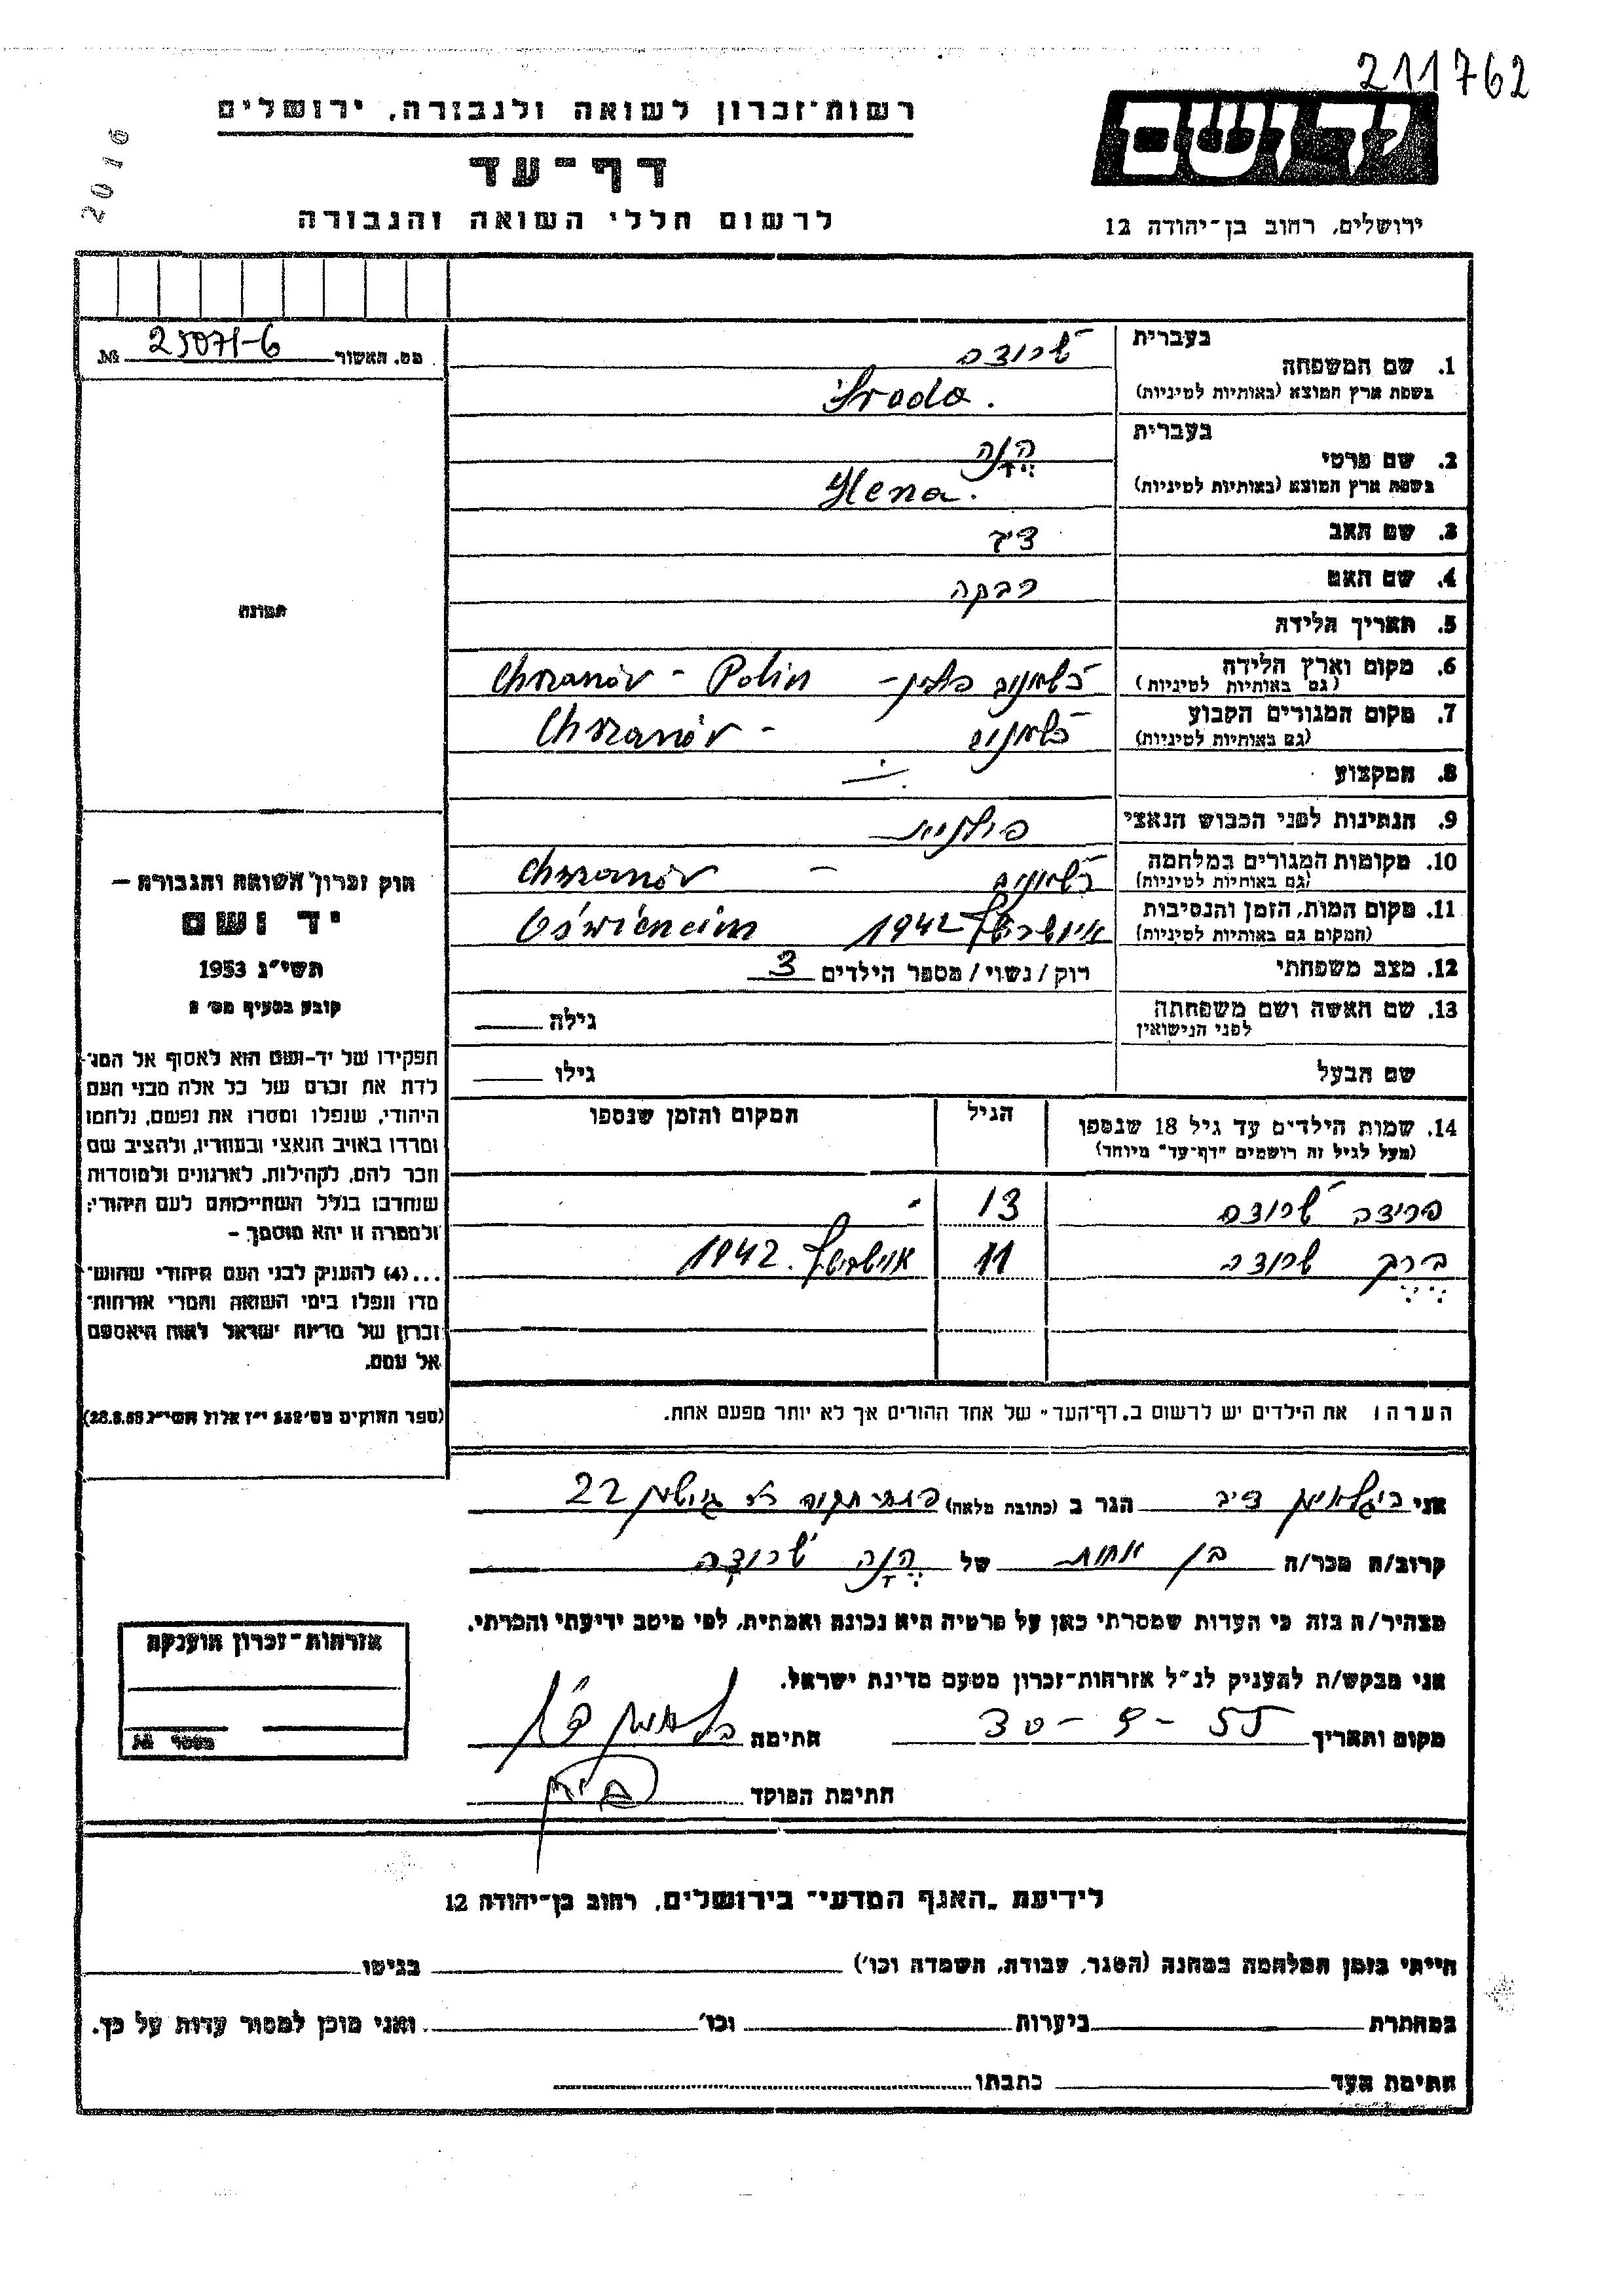 211762
2010
רשות־זכרון לשואה ולגבורה, ירושלים
יד ושם
דף־עד
לרשום חללי השואה והגבורה
ירושלים, רחוב בן־יהודה 12
מס. האשור 25071-6 №
תמונה
1. שם המשפחה
בעברית שרודה
בשפת ארץ המוצא (באותיות לטיניות) Środa.
2. שם פרטי
בעברית הֶנָה
בשפת ארץ המוצא (באותיות לטיניות) Hena.
3. שם האב
4. שם האם רבקה
5. תאריך הלידה
6. מקום וארץ הלידה
(גם באותיות לטיניות) פולין - Chrzanów - Polin
7. מקום המגורים הקבוע
(גם באותיות לטיניות) Chrzanów -
8. המקצוע
9. הנתינות לפני הכבוש הנאצי פולנית
10. מקומות המגורים במלחמה
(גם באותיות לטיניות) - Chrzanów
11. מקום המות, הזמן והנסיבות
(המקום גם באותיות לטיניות) 1942 Oświęcim
12. מצב משפחתי רוק / נשוי / מספר הילדים 3
13. שם האשה ושם משפחתה
לפני הנישואין
גילה
שם הבעל גילו
14. שמות הילדים עד גיל 18 שנספו
(מעל לגיל זה רושמים "דף־עד" מיוחד)
הגיל
המקום והזמן שנספו
שרודה 13
שרודה 11 1942
הערה: את הילדים יש לרשום ב„דף־העד" של אחד ההורים אך לא יותר מפעם אחת.
חוק זכרון השואה והגבורה –
יד ושם
תשי״ג 1953
קובע בסעיף מס׳ 2
תפקידו של יד-ושם הוא לאסוף אל המו־
לדת את זכרם של כל אלה מבני העם
היהודי, שנפלו ומסרו את נפשם, נלחמו
ומרדו באויב הנאצי ובעוזריו, ולהציב שם
וזכר להם, לקהילות, לארגונים ולמוסדות
שנחרבו בגלל השתייכותם לעם היהודי;
ולמטרה זו יהא מוסמך –
...(4) להעניק לבני העם היהודי שהוש־
מדו ונפלו בימי השואה והמרי אזרחות־
זכרון של מדינת ישראל לאות היאספם
אל עמם.
(ספר החוקים מס׳ 132 י״ז אלול תשי״ג 28.8.53)
אני הגר ב (כתובת מלאה) פתח תקוה 22
קרוב/ה מכר/ה בן אחות של הֶנָה שרודה
מצהיר/ה בזה כי העדות שמסרתי כאן על פרטיה היא נכונה ואמתית, לפי מיטב ידיעתי והכרתי.
אני מבקש/ת להעניק לנ״ל אזרחות־זכרון מטעם מדינת ישראל.
מקום ותאריך 30-9-55 חתימה
חתימת הפוקד
אזרחות־זכרון הוענקה
מספר №
לידיעת „האגף המדעי" בירושלים, רחוב בן־יהודה 12
הייתי בזמן המלחמה במחנה (הסגר, עבודה, השמדה וכו') בגיטו
במחתרת ביערות וכו' ואני מוכן למסור עדות על כך.
חתימת העד כתבתו